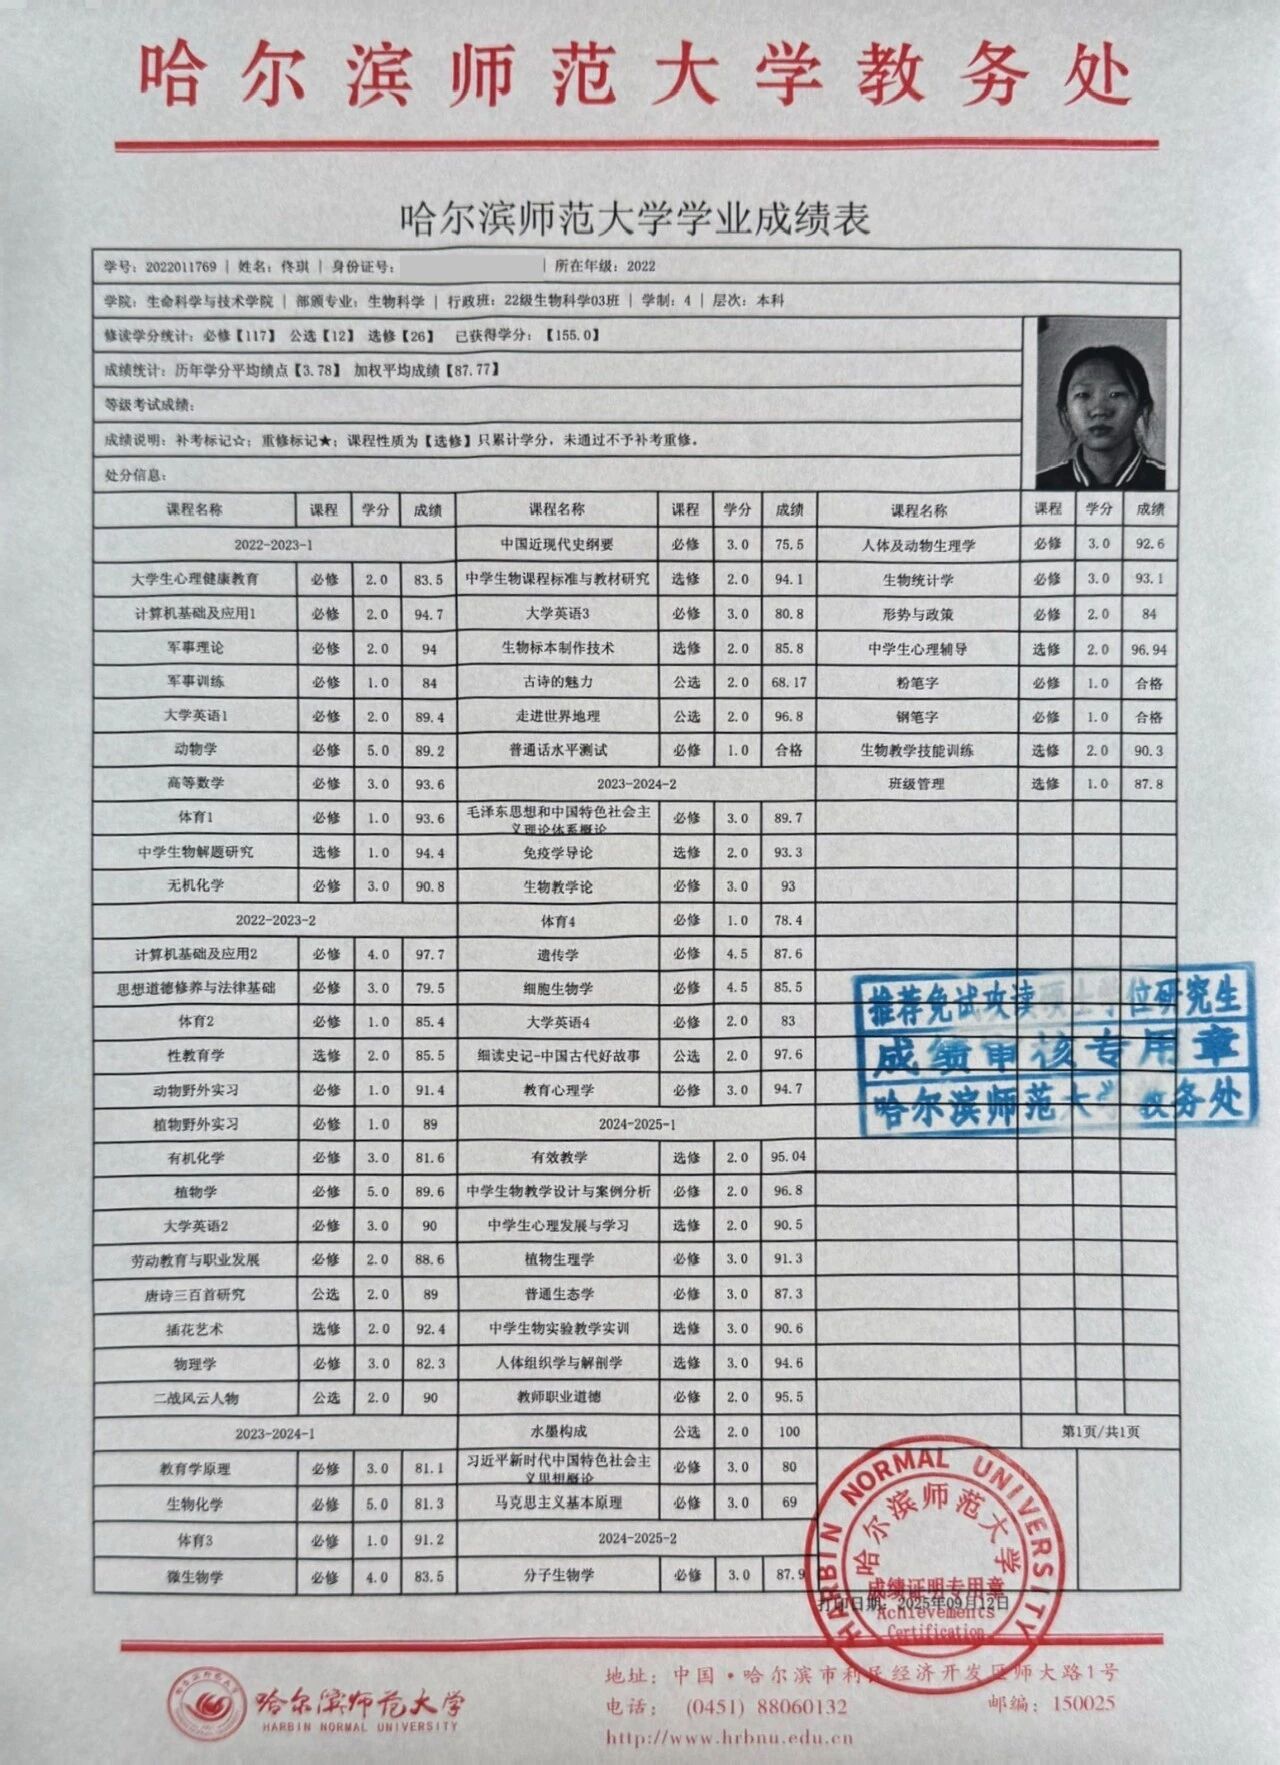 哈尔滨师范大学教务处
哈尔滨师范大学学业成绩表
学号: 2022011769 | 姓名: 佟琪 | 身份证号: | 所在年级: 2022
学院: 生命科学与技术学院 | 部颁专业: 生物科学 | 行政班: 22级生物科学03班 | 学制: 4 | 层次: 本科
修读学分统计: 必修【117】 公选【12】 选修【26】 已获得学分: 【155.0】
成绩统计: 历年学分平均绩点【3.78】 加权平均成绩【87.77】
等级考试成绩:
成绩说明: 补考标记☆; 重修标记★; 课程性质为【选修】只累计学分, 未通过不予补考重修。
处分信息:
课程名称 课程 学分 成绩 课程名称 课程 学分 成绩 课程名称 课程 学分 成绩
2022-2023-1 中国近现代史纲要 必修 3.0 75.5 人体及动物生理学 必修 3.0 92.6
大学生心理健康教育 必修 2.0 83.5 中学生物课程标准与教材研究 选修 2.0 94.1 生物统计学 必修 3.0 93.1
计算机基础及应用1 必修 2.0 94.7 大学英语3 必修 3.0 80.8 形势与政策 必修 2.0 84
军事理论 必修 2.0 94 生物标本制作技术 选修 2.0 85.8 中学生心理辅导 选修 2.0 96.94
军事训练 必修 1.0 84 古诗的魅力 公选 2.0 68.17 粉笔字 必修 1.0 合格
大学英语1 必修 2.0 89.4 走进世界地理 公选 2.0 96.8 钢笔字 必修 1.0 合格
动物学 必修 5.0 89.2 普通话水平测试 必修 1.0 合格 生物教学技能训练 选修 2.0 90.3
高等数学 必修 3.0 93.6 2023-2024-2 班级管理 选修 1.0 87.8
体育1 必修 1.0 93.6 毛泽东思想和中国特色社会主义理论体系概论 必修 3.0 89.7
中学生物解题研究 选修 1.0 94.4 免疫学导论 选修 2.0 93.3
无机化学 必修 3.0 90.8 生物教学论 必修 3.0 93
2022-2023-2 体育4 必修 1.0 78.4
计算机基础及应用2 必修 4.0 97.7 遗传学 必修 4.5 87.6
思想道德修养与法律基础 必修 3.0 79.5 细胞生物学 必修 4.5 85.5
体育2 必修 1.0 85.4 大学英语4 必修 2.0 83
性教育学 选修 2.0 85.5 细读史记-中国古代好故事 公选 2.0 97.6
动物野外实习 必修 1.0 91.4 教育心理学 必修 3.0 94.7
植物野外实习 必修 1.0 89 2024-2025-1
有机化学 必修 3.0 81.6 有效教学 选修 2.0 95.04
植物学 必修 5.0 89.6 中学生物教学设计与案例分析 必修 2.0 96.8
大学英语2 必修 3.0 90 中学生心理发展与学习 选修 2.0 90.5
劳动教育与职业发展 必修 2.0 88.6 植物生理学 必修 3.0 91.3
唐诗三百首研究 公选 2.0 89 普通生态学 必修 3.0 87.3
插花艺术 选修 2.0 92.4 中学生物实验教学实训 选修 3.0 90.6
物理学 必修 3.0 82.3 人体组织学与解剖学 选修 3.0 94.6
二战风云人物 公选 2.0 90 教师职业道德 必修 2.0 95.5
2023-2024-1 水墨构成 公选 2.0 100 第1页/共1页
教育学原理 必修 3.0 81.1 习近平新时代中国特色社会主义思想概论 必修 3.0 80
生物化学 必修 5.0 81.3 马克思主义基本原理 必修 3.0 69
体育3 必修 1.0 91.2 2024-2025-2
微生物学 必修 4.0 83.5 分子生物学 必修 3.0 87.9
推荐免试攻读硕士学位研究生
成绩审核专用章
哈尔滨师范大学教务处
HARBIN NORMAL UNIVERSITY
哈尔滨师范大学
成绩证明专用章
打印日期: 2025年09月12日
Achievements
Certification
哈尔滨师范大学
HARBIN NORMAL UNIVERSITY
地址: 中国·哈尔滨市利民经济开发区师大路1号
电话: (0451) 88060132 邮编: 150025
http://www.hrbnu.edu.cn